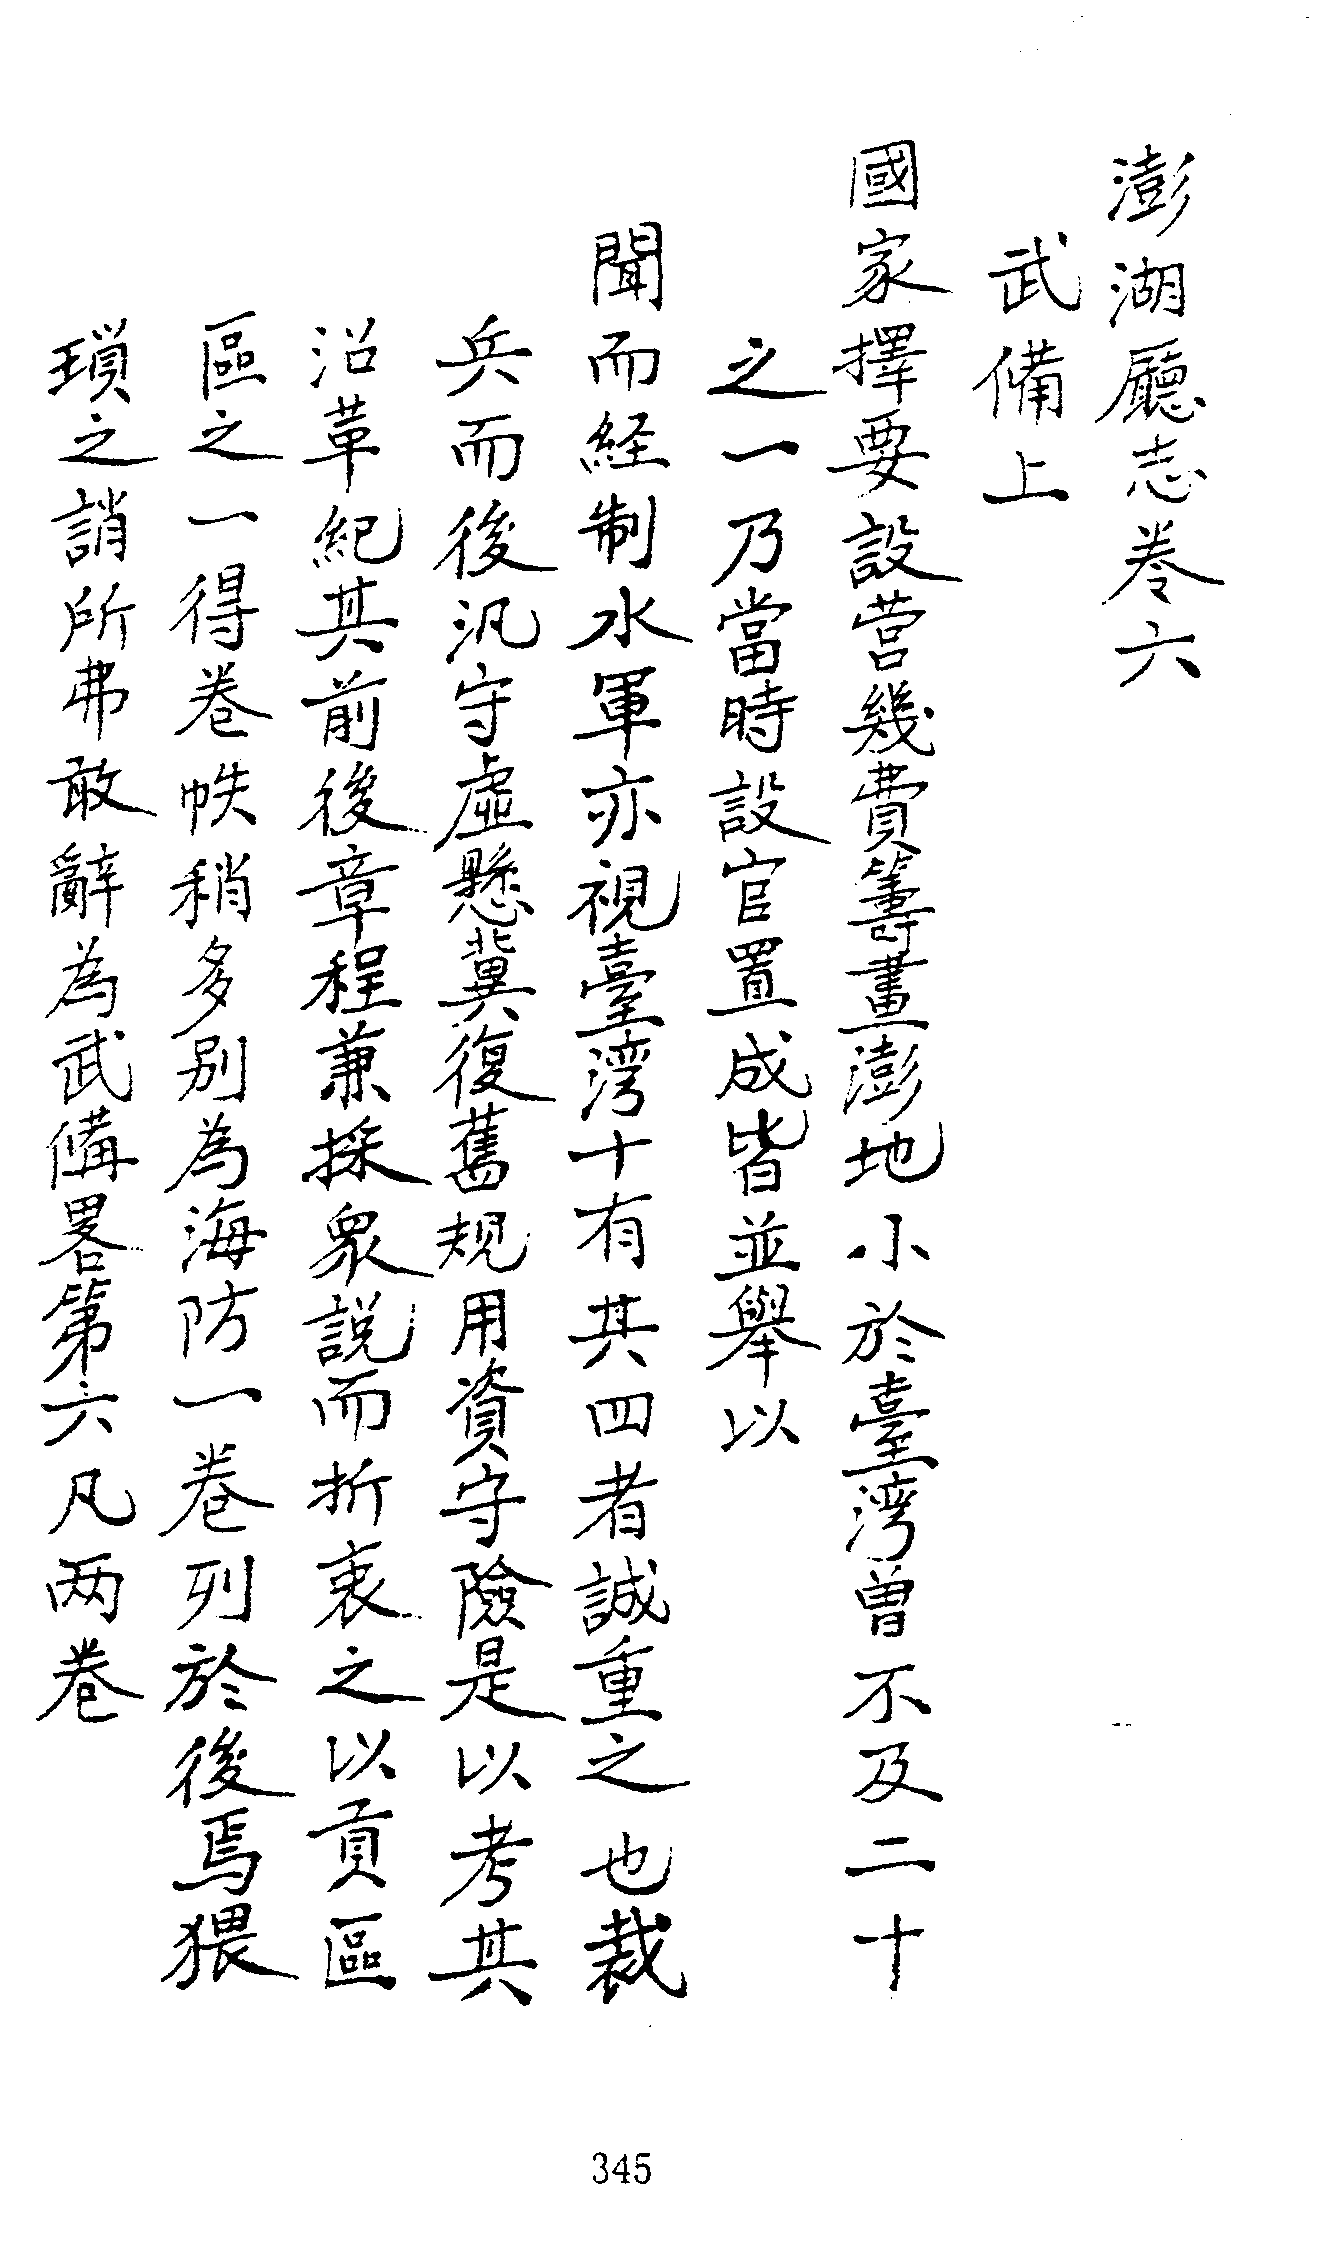 澎湖廳志卷六
武備上
國家擇要設营幾費籌畫澎地小於臺灣曾不及二十
之一乃當時設官置成皆並舉以
聞而経制水軍亦視臺灣十有其四者誠重之也裁
兵而後汛守虛懸冀復舊规用資守險是以考其
沿革紀其前後章程兼採衆說而折衷之以貢區
區之一得卷帙稍多別為海防一卷列於後焉猥
瑣之誚所弗敢辭為武備畧第六凡两卷
345